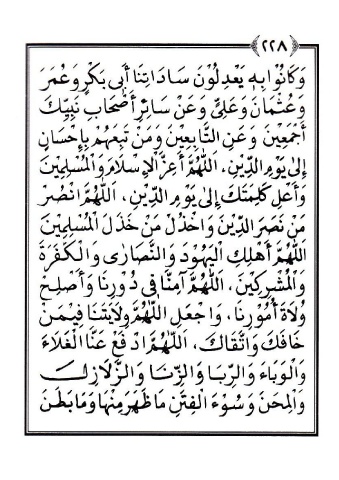 ﴿٢٢٨﴾
وَكَانُوْا بِهٖ يَعْدِلُوْنَ سَادَاتِنَا أَبِى بَكْرٍ وَعُمَرَ
وَعُثْمَانَ وَعَلِىٍّ وَعَنْ سَائِرِ أَصْحَابِ نَبِيِّكَ
أَجْمَعِيْنَ وَعَنِ التَّابِعِيْنَ وَمَنْ تَبِعَهُمْ بِإِحْسَانٍ
إِلٰى يَوْمِ الدِّيْنِ، اَللّٰهُمَّ أَعِزَّ الْإِسْلَامَ وَالْمُسْلِمِيْنَ
وَأَعْلِ كَلِمَتَكَ إِلٰى يَوْمِ الدِّيْنِ، اَللّٰهُمَّ انْصُرْ
مَنْ نَصَرَ الدِّيْنَ وَاخْذُلْ مَنْ خَذَلَ الْمُسْلِمِيْنَ
اَللّٰهُمَّ أَهْلِكِ الْيَهُوْدَ وَالنَّصَارٰى وَالْكَفَرَةَ
وَالْمُشْرِكِيْنَ، اَللّٰهُمَّ آمِنَّا فِى دُوْرِنَا وَأَصْلِحْ
وُلَاةَ أُمُوْرِنَا، وَاجْعَلِ اللّٰهُمَّ وِلَايَتَنَا فِيْمَنْ
خَافَكَ وَاتَّقَاكَ، اَللّٰهُمَّ ادْفَعْ عَنَّا الْغَلَاءَ
وَالْوَبَاءَ وَالرِّبَا وَالزِّنَا وَالزَّلَازِلَ
وَالْمِحَنَ وَسُوْءَ الْفِتَنِ مَا ظَهَرَ مِنْهَا وَمَا بَطَنَ